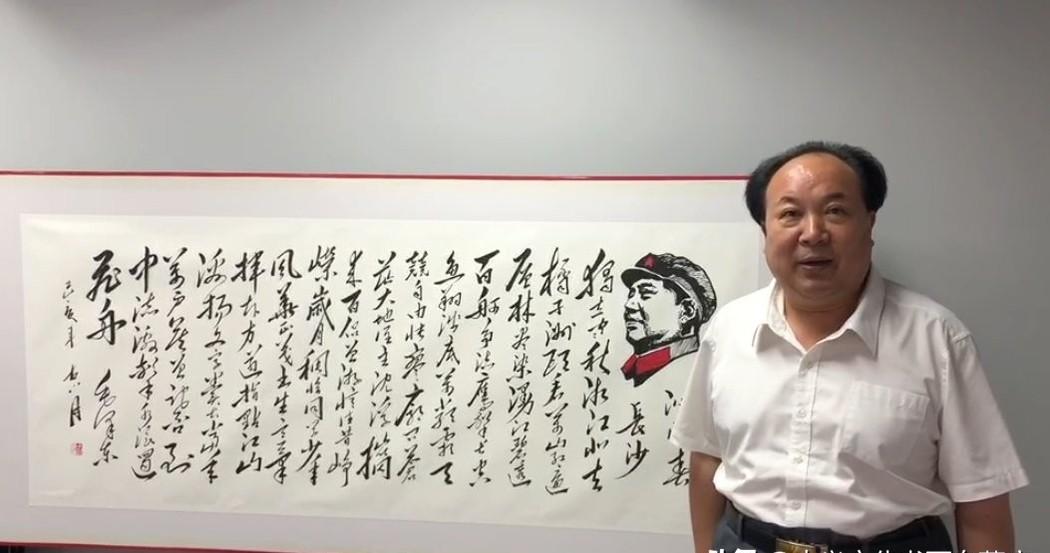 沁园春
長沙
獨立寒秋湘江北去
橘子洲頭看萬山紅遍
层林尽染漫江碧透
百舸争流鹰擊长空
鱼翔浅底萬類霜天
競自由怅寥廓問蒼
茫大地谁主沉浮携
来百侣曾游憶往昔峥
嵘歲月稠恰同学少年
風華正茂書生意氣
揮斥方遒指點江山
激扬文字糞土当年
萬户侯曾记否到
中流激水浪遏
飛舟 毛澤东
己亥年 六月